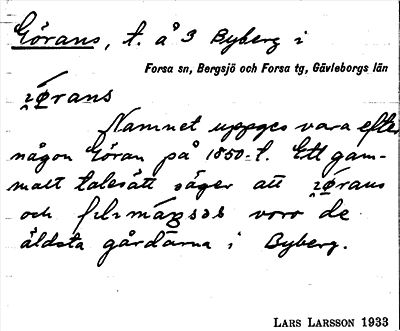 Görans, t. å 3 Byberg i
Forsa sn, Bergsjö och Forsa tg, Gävleborgs län
Namnet uppges vara efter
någon Göran på 1850-t. Ett gam-
malt talesätt säger att
och voro de
äldsta gårdarna i Byberg.
LARS LARSSON 1933